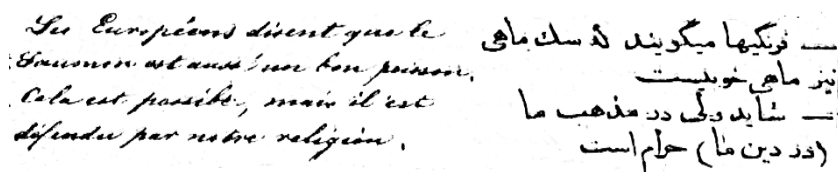 Les Européens disent que le
Saumon est aussi un bon poisson.
Cela est possible, mais il est
défendu par notre religion.
— فرنگیها میگویند که سك ماهی
نیز ماهی خوبیست
— شاید ولی در مذهب ما
(در دین ما) حرام است